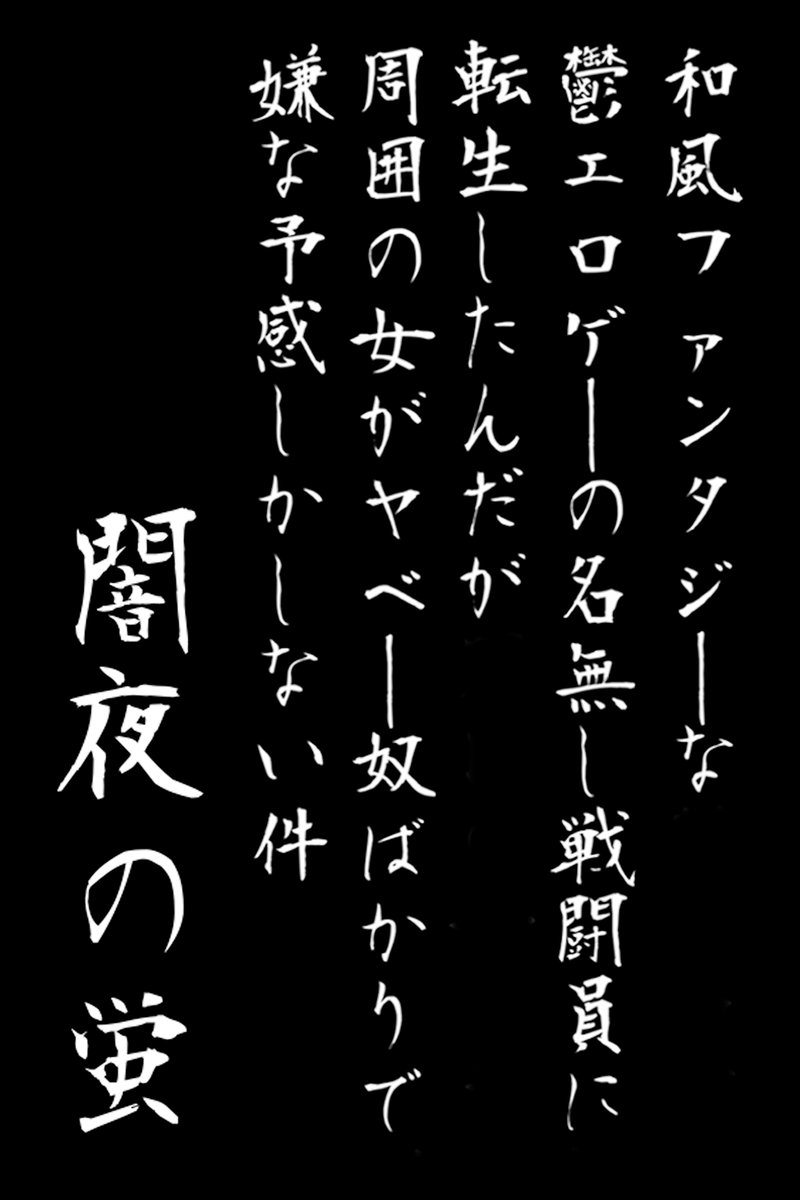 和風ファンタジーな
鬱エロゲーの名無し戦闘員に
転生したんだが
周囲の女がヤベー奴ばかりで
嫌な予感しかしない件
闇夜の蛍